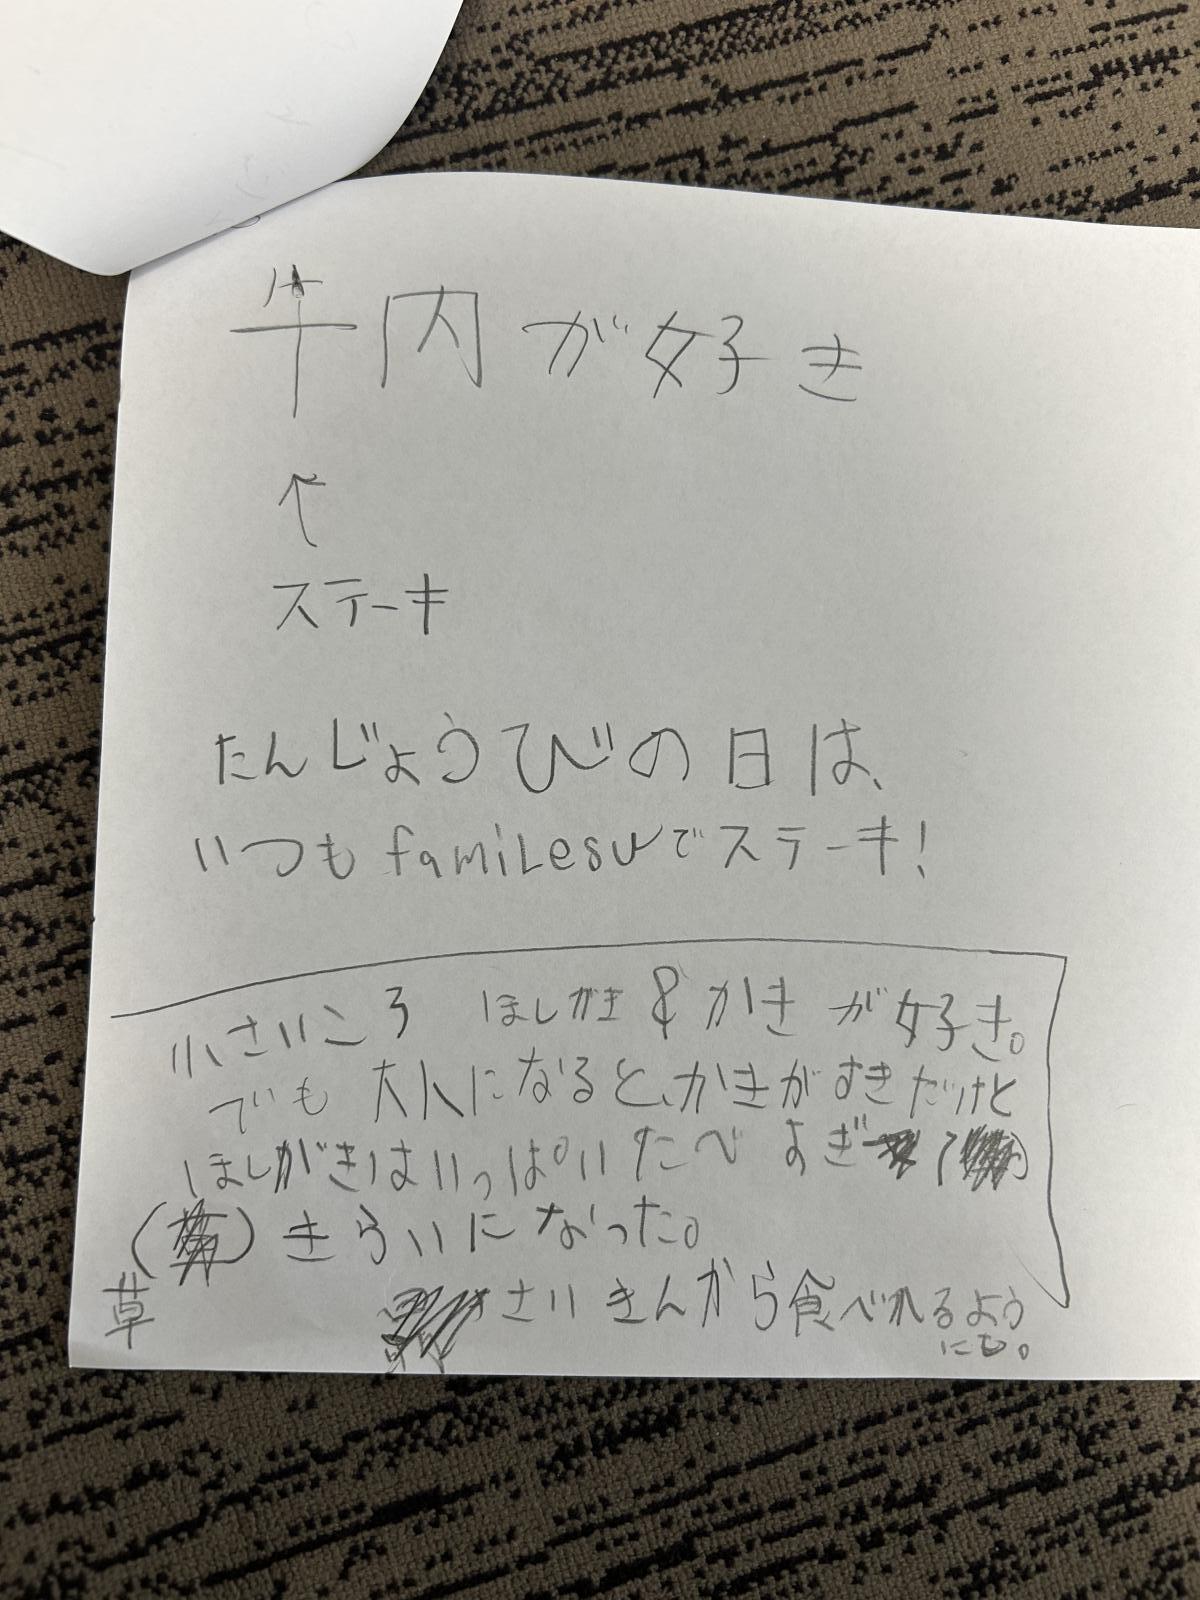 牛内が好き
↑
ステーキ
たんじょうびの日は、
いつもfamiLesuでステーキ!
小さいころ ほしがき&かきが好き。
でも大人になると、かきがすきだけど
ほしがきはいっぱいたべすぎて
( )きらいになった。
草
さいきんから食べれるよう
にも。